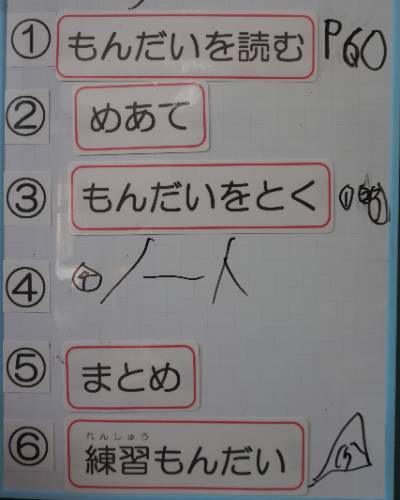 ① もんだいを読む P60
② めあて
③ もんだいをとく ①
④ ノート
⑤ まとめ
れんしゅう
⑥ 練習もんだい